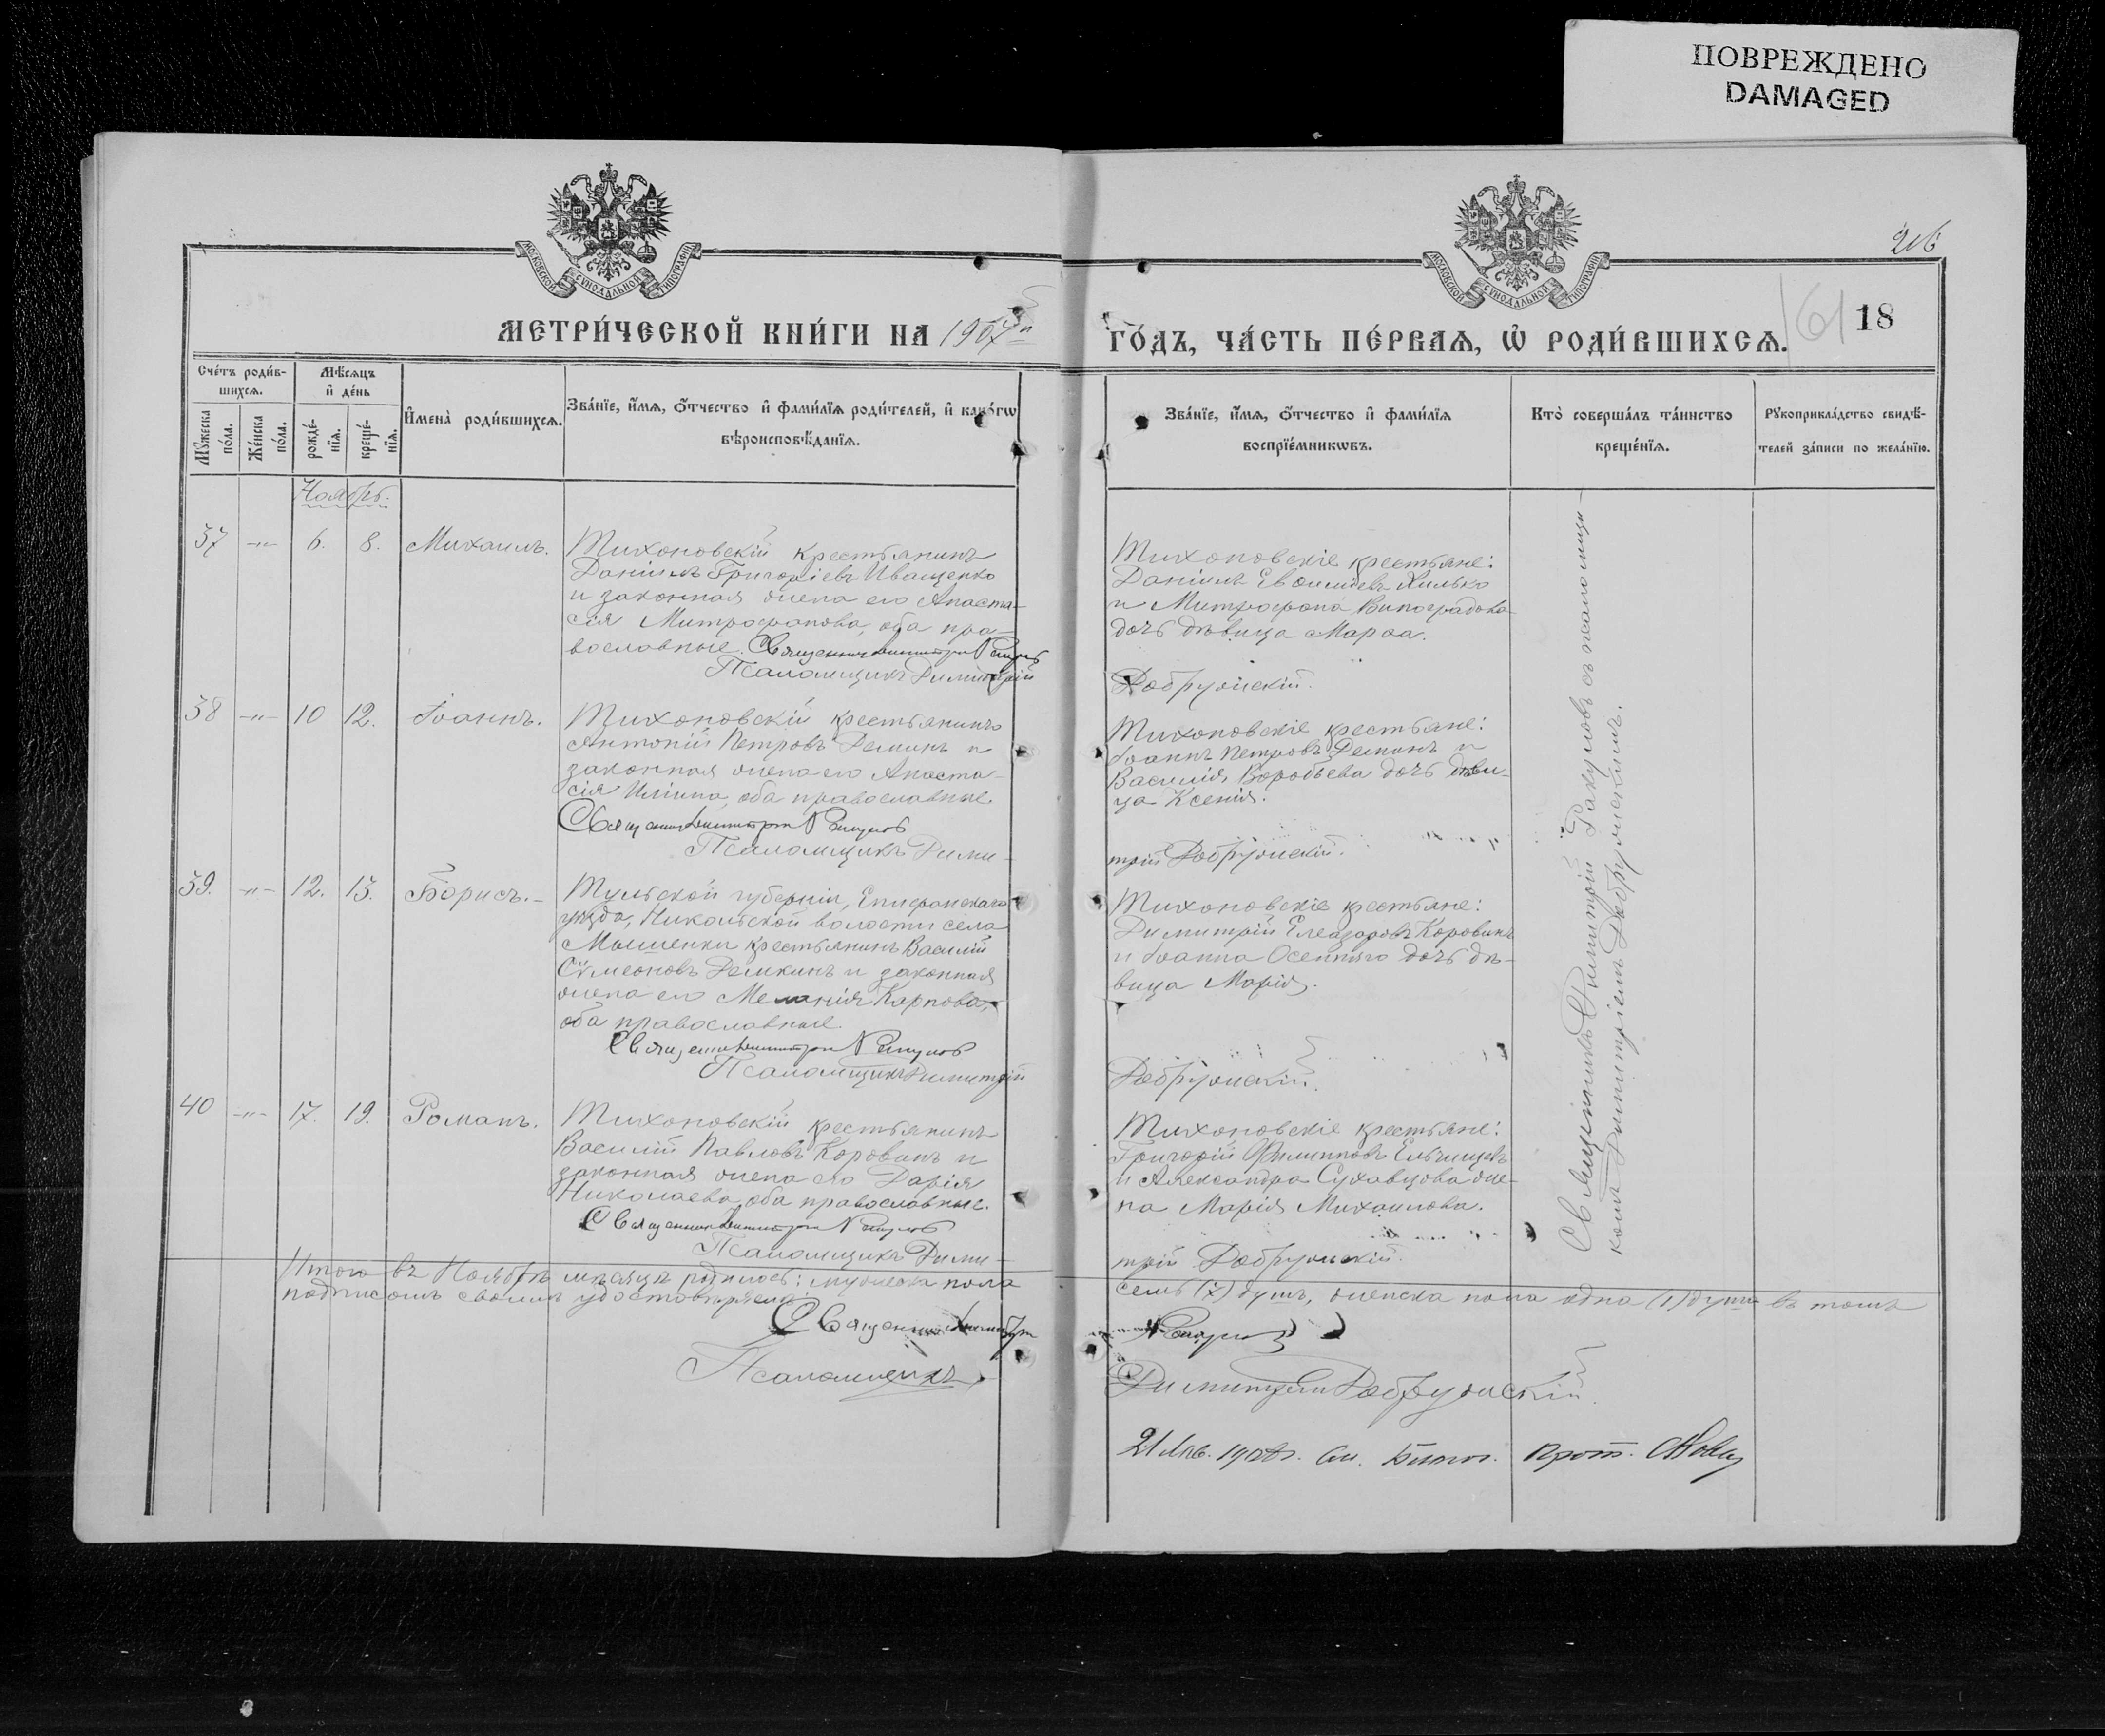 ПОВРЕЖДЕНО
DAMAGED
МОСКОВСКОЙ СѴНОДАЛЬНОЙ ТИПОГРАФІИ
МОСКОВСКОЙ СѴНОДАЛЬНОЙ ТИПОГРАФІИ
216
МЕТРИ́ЧЕСКОЙ КНИ́ГИ НА 1907й
ГО́ДЪ, ЧА́СТЬ ПЕ́РВАѦ, Ѡ҆ РОДИ́ВШИХСѦ.
161 18
Сче́тъ роди́в-
шихсѧ.
Мꙋ́жеска
по́ла.
Же́нска
по́ла.
Мѣ́сѧцъ
и҆ де́нь
рожде́-
нїѧ.
креще́-
нїѧ.
И҆мена̀ роди́вшихсѧ.
Зва́нїе, и҆́мѧ, ѻ҆́тчество и҆ фами́лїѧ роди́телей, и҆ како́гѡ
вѣроисповѣ́данїѧ.
Зва́нїе, и҆́мѧ, ѻ҆́тчество и҆ фами́лїѧ
воспрїе́мникѡвъ.
Кто̀ соверша́лъ та́инство
креще́нїѧ.
Рꙋкоприкла́дство свидѣ́-
телей за́писи по жела́нїю.
Ноябрь.
37 -"- 6. 8. Михаилъ.
Тихоновскій крестьянинъ
Даніилъ Григоріевъ Иващенко
и законная жена его Анаста-
сія Митрофанова, оба пра-
вославные. Священникъ Димитрій Ракуловъ
Псаломщикъ Димитрій
Тихоновскіе крестьяне:
Даніилъ Евфиміевъ Хилько
и Митрофана Виноградова
дочь дѣвица Марѳа.
Добружскій.
38 -"- 10 12. Іоаннъ.
Тихоновскій крестьянинъ
Антоній Петровъ Деминъ и
законная жена его Анаста-
сія Иліина, оба православные.
Священникъ Димитрій Ракуловъ
Псаломщикъ Дими-
Тихоновскіе крестьяне:
Іоаннъ Петровъ Деминъ и
Василія Воробьева дочь дѣви-
ца Ксенія.
трій Добружскій.
39. -"- 12. 13. Борисъ.-
Тульской губерніи, Епифанскаго
уѣзда, Никольской волости села
Мышенки крестьянинъ Василій
Сѵмеоновъ Демкинъ и законная
жена его Меланія Карпова,
оба православные
Священникъ Димитрій Ракуловъ
Псаломщикъ Димитрій
Тихоновскіе крестьяне:
Димитрій Елеазаровъ Коровинъ
и Іоанна Осенняго дочь дѣ-
вица Марія.
Добружскій.
40 -"- 17. 19. Романъ.
Тихоновскій крестьянинъ
Василій Павловъ Коровинъ и
законная жена его Дарія
Николаева, оба православные.
Священникъ Димитрій Ракуловъ
Псаломщикъ Дими-
Тихоновскіе крестьяне:
Григорій Филипповъ
и Александра Сухавцова же-
на Марія Михаилова.
трій Добружскій.
Священникъ Димитрій Ракуловъ съ псаломщи-
комъ Димитріемъ Добружскимъ.
Итого въ Ноябрѣ мѣсяцѣ родилось: мужеска пола
семь (7) душъ, женска пола одна (1) душа въ томъ
подписомъ своимъ удостовѣряемъ:
Священникъ Димитрій
Ракуловъ
Псаломщикъ
Димитрій Добружскій.
21 Янв. 1908 г. Прот.